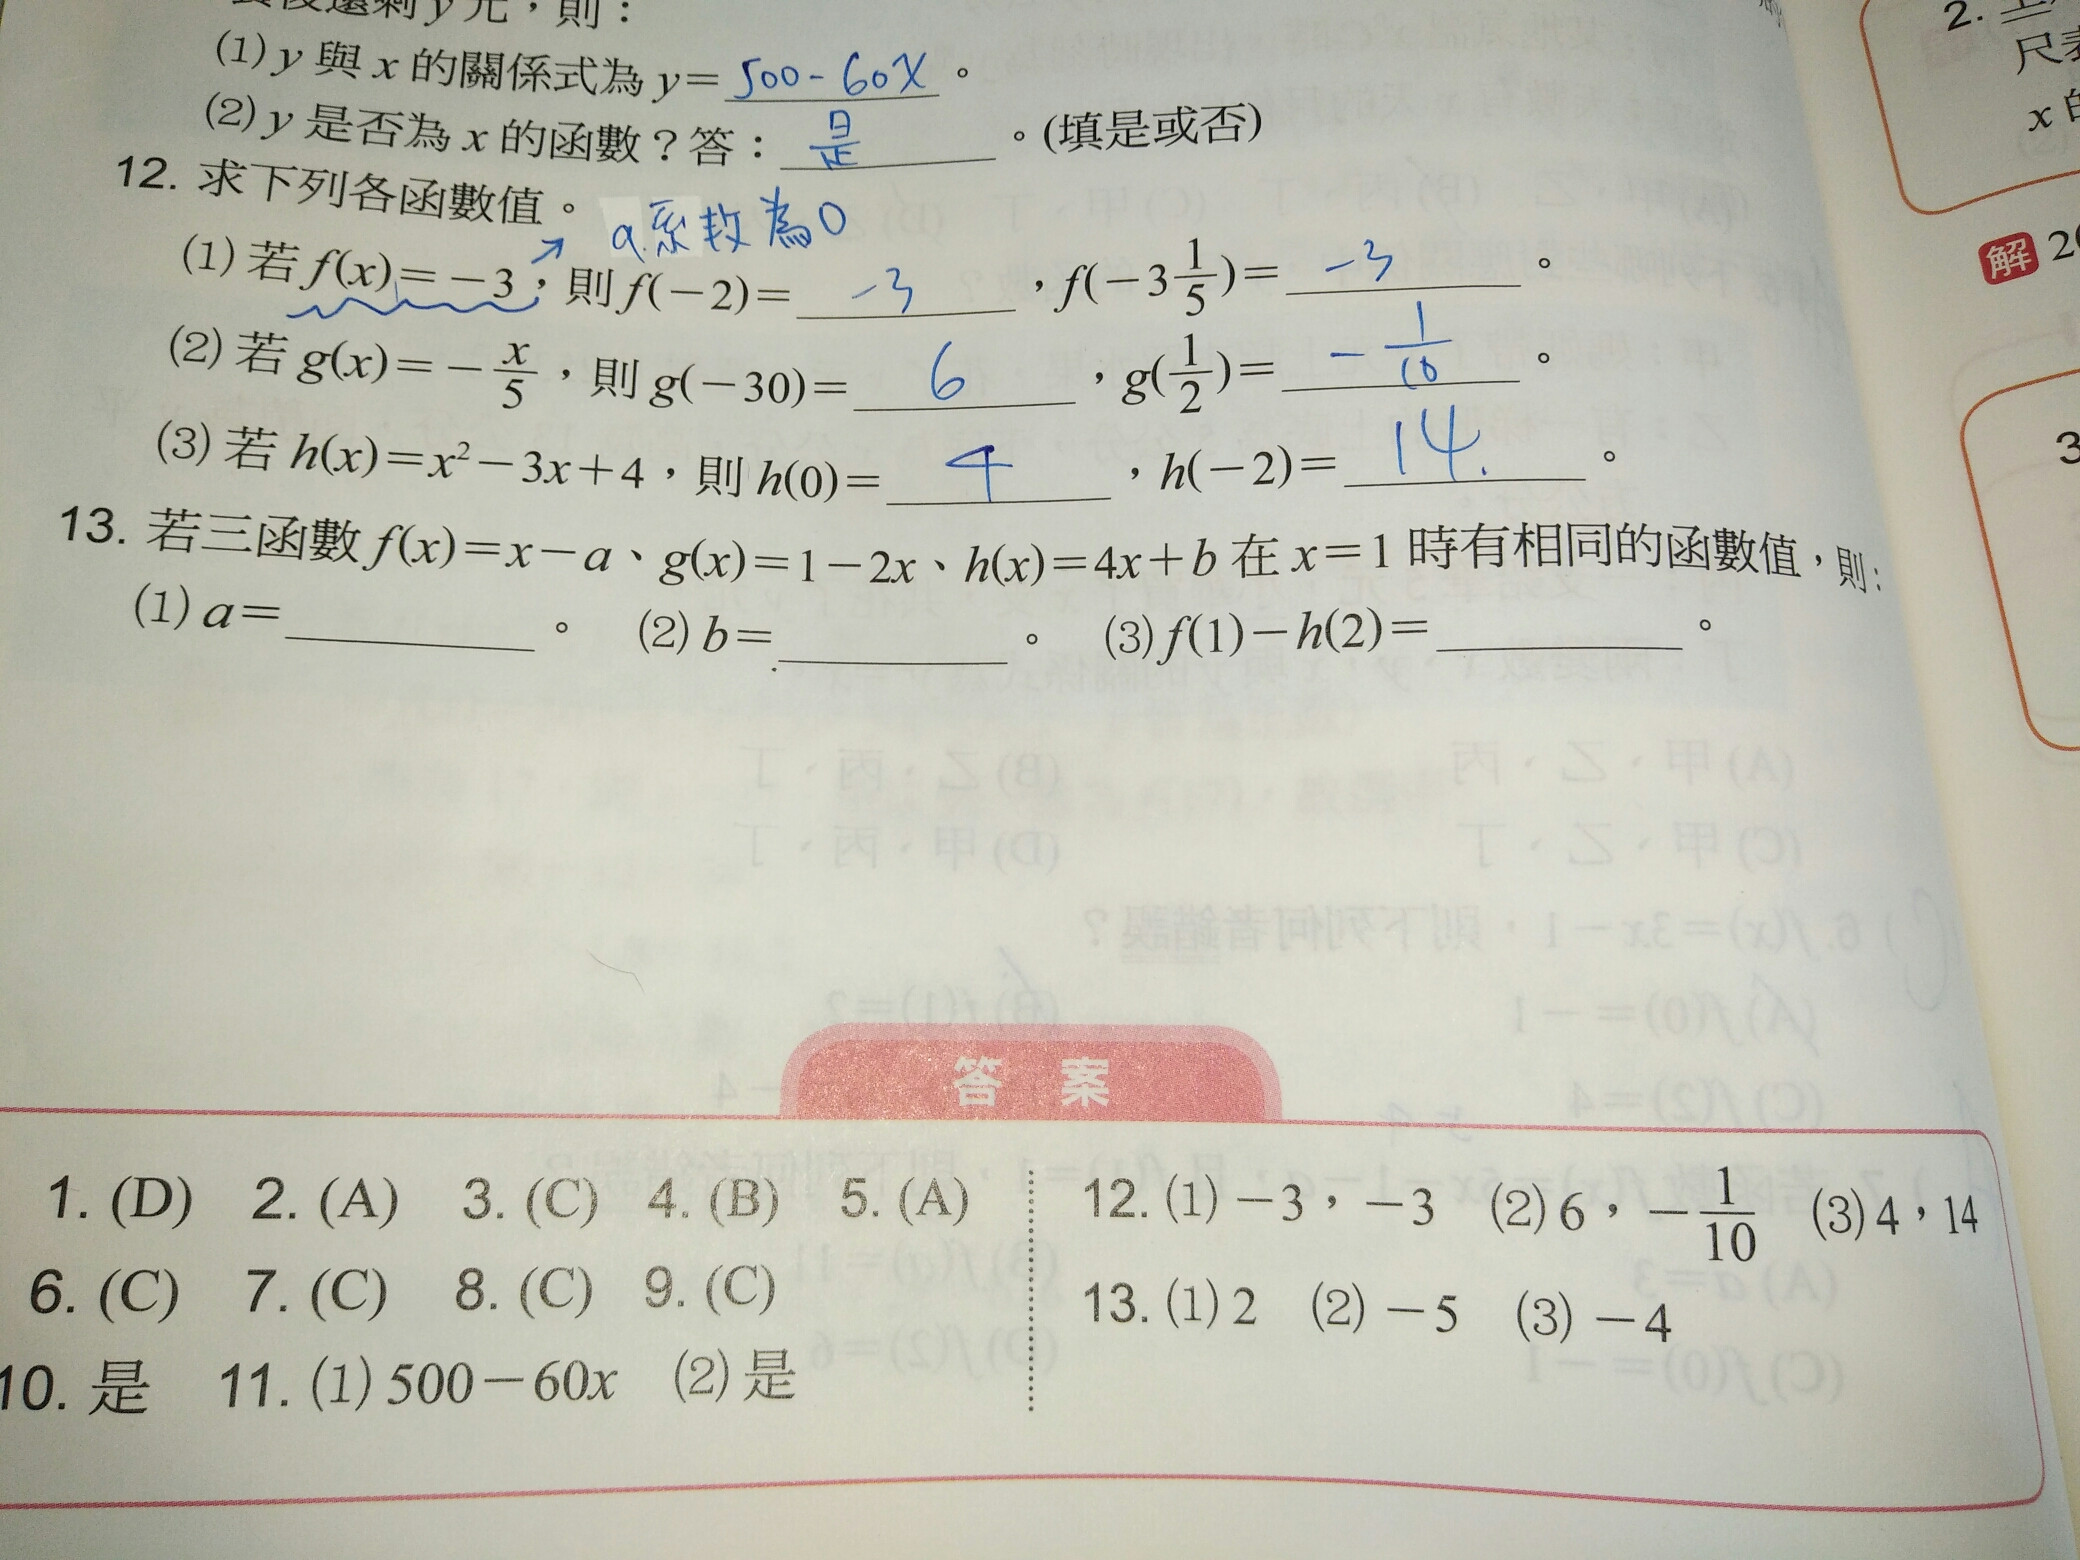 還剩y元，則：
(1) y 與 x 的關係式為 y= 500-60x 。
(2) y 是否為 x 的函數？答： 是 。(填是或否)
12. 求下列各函數值。
a係数為0
(1) 若 f(x)=-3，則 f(-2)= -3 ，f(-3 1/5)= -3 。
(2) 若 g(x)=-x/5，則 g(-30)= 6 ，g(1/2)= -1/10 。
(3) 若 h(x)=x²-3x+4，則 h(0)= 4 ，h(-2)= 14. 。
13. 若三函數 f(x)=x-a、g(x)=1-2x、h(x)=4x+b 在 x=1 時有相同的函數值，則：
(1) a=______。 (2) b=______。 (3) f(1)-h(2)=______。
答 案
1. (D) 2. (A) 3. (C) 4. (B) 5. (A)
6. (C) 7. (C) 8. (C) 9. (C)
10. 是 11. (1) 500-60x (2) 是
12. (1) -3，-3 (2) 6，-1/10 (3) 4，14
13. (1) 2 (2) -5 (3) -4
2.
尺
x 的
解 20
3